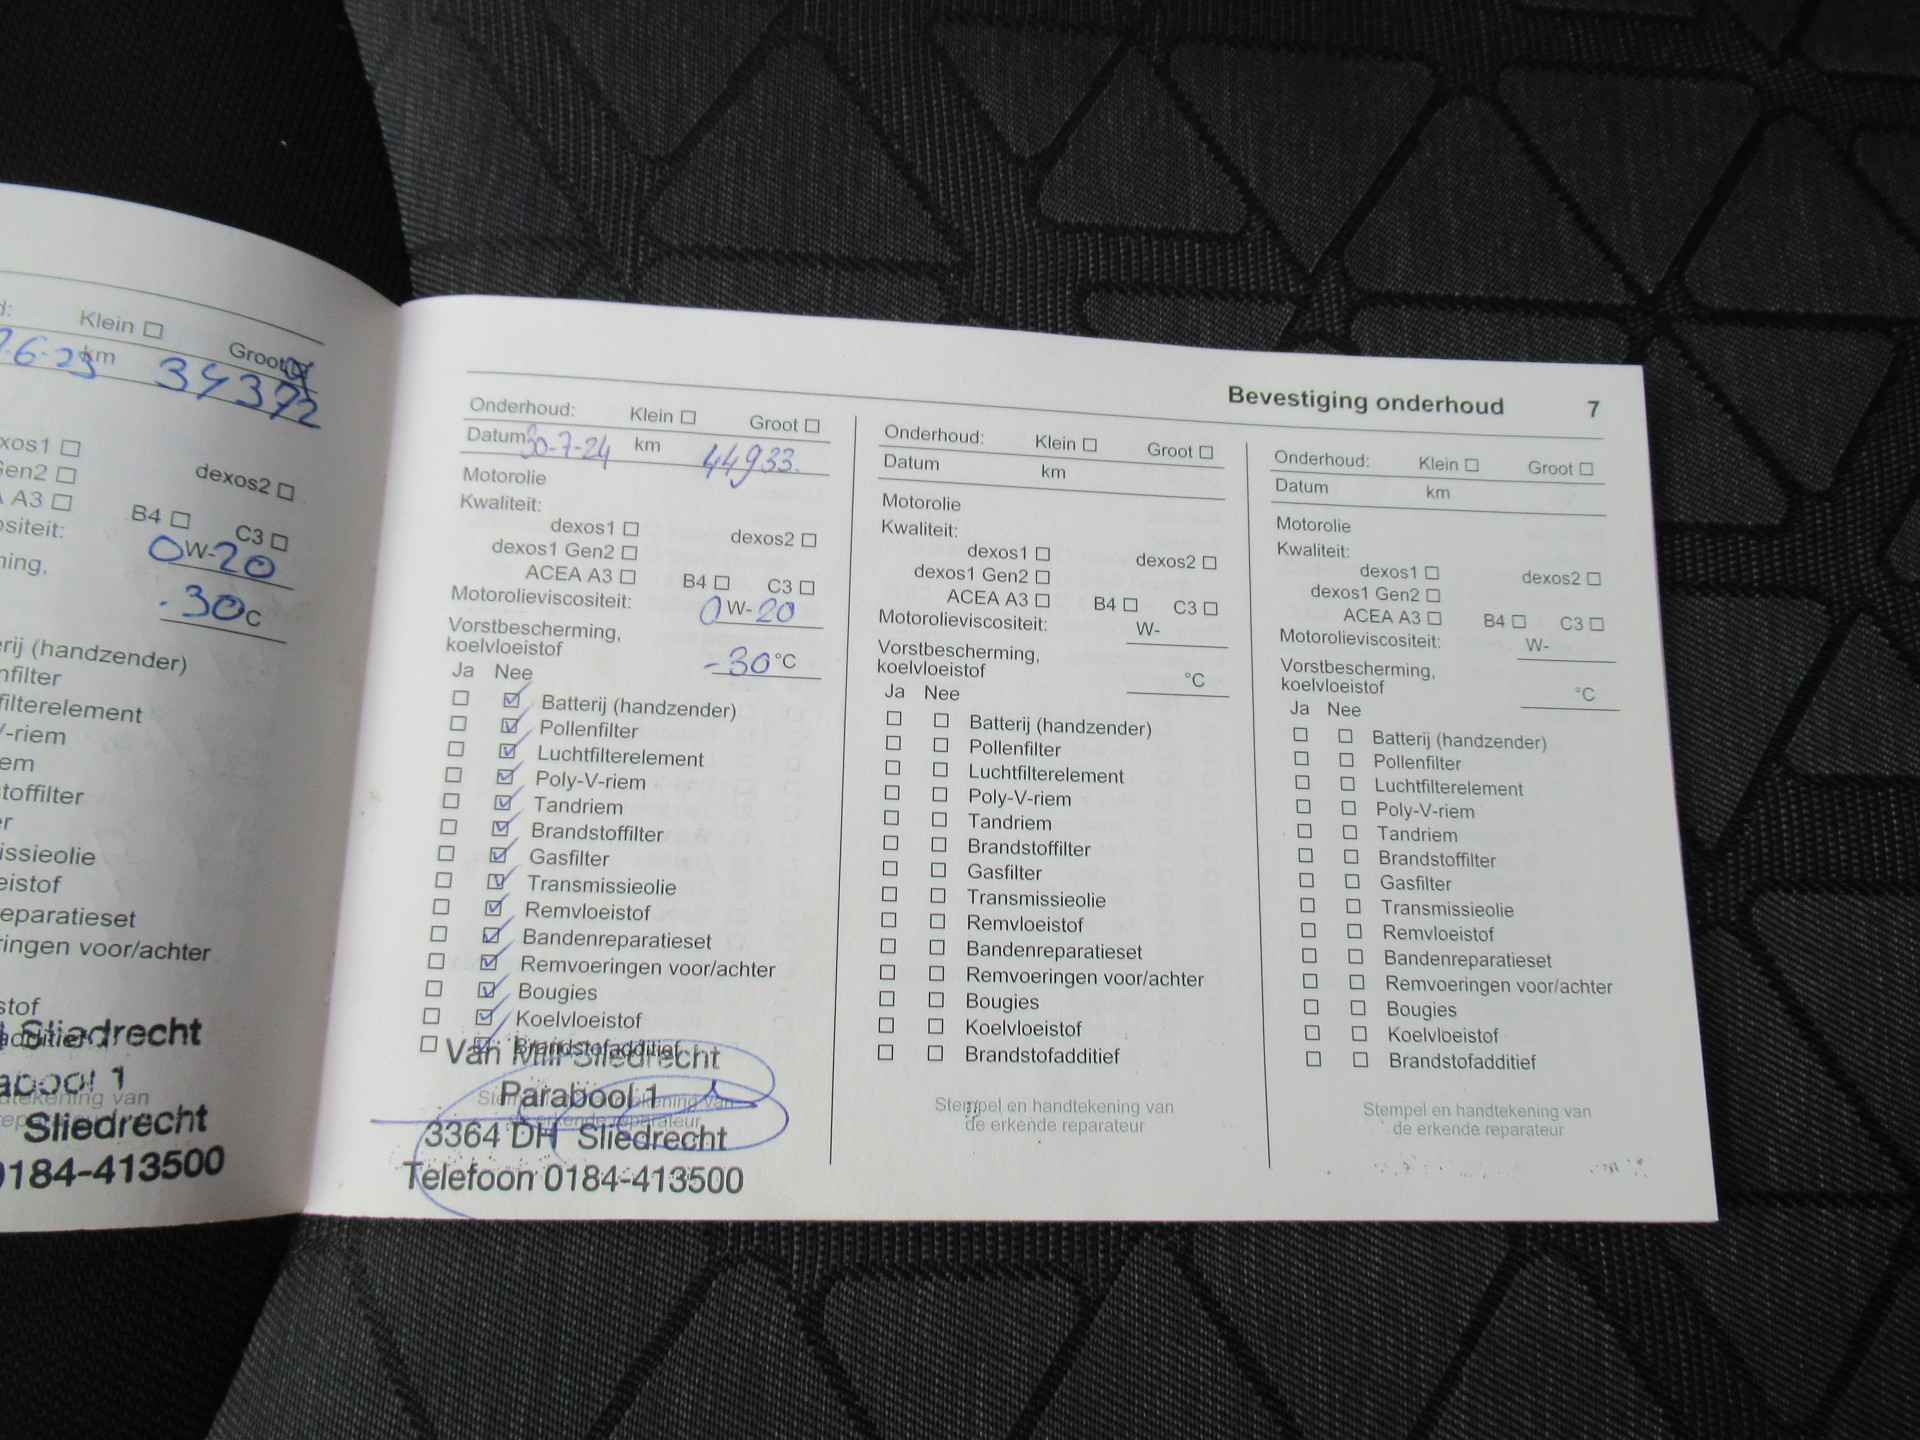 d:
Klein
Groot
6-23
km
34372
dexos2
B4
C3
0W-20
-30 C
(handzender)
filterelement
V-riem
eparatieset
voor/achter
Sliedrecht
1
Sliedrecht
0184-413500
Bevestiging onderhoud 7
Onderhoud: Klein Groot
Datum 30-7-24 km 44933
Motorolie
Kwaliteit:
dexos1 dexos2
dexos1 Gen2
ACEA A3 B4 C3
Motorolieviscositeit: 0W-20
Vorstbescherming,
koelvloeistof -30 °C
Ja Nee
Batterij (handzender)
Pollenfilter
Luchtfilterelement
Poly-V-riem
Tandriem
Brandstoffilter
Gasfilter
Transmissieolie
Remvloeistof
Bandenreparatieset
Remvoeringen voor/achter
Bougies
Koelvloeistof
Brandstofadditief
Van Mill Sliedrecht
Parabool 1
3364 DH Sliedrecht
Telefoon 0184-413500
Onderhoud: Klein Groot
Datum km
Motorolie
Kwaliteit:
dexos1 dexos2
dexos1 Gen2
ACEA A3 B4 C3
Motorolieviscositeit: W-
Vorstbescherming,
koelvloeistof °C
Ja Nee
Batterij (handzender)
Pollenfilter
Luchtfilterelement
Poly-V-riem
Tandriem
Brandstoffilter
Gasfilter
Transmissieolie
Remvloeistof
Bandenreparatieset
Remvoeringen voor/achter
Bougies
Koelvloeistof
Brandstofadditief
Stempel en handtekening van
de erkende reparateur
Onderhoud: Klein Groot
Datum km
Motorolie
Kwaliteit:
dexos1 dexos2
dexos1 Gen2
ACEA A3 B4 C3
Motorolieviscositeit: W-
Vorstbescherming,
koelvloeistof °C
Ja Nee
Batterij (handzender)
Pollenfilter
Luchtfilterelement
Poly-V-riem
Tandriem
Brandstoffilter
Gasfilter
Transmissieolie
Remvloeistof
Bandenreparatieset
Remvoeringen voor/achter
Bougies
Koelvloeistof
Brandstofadditief
Stempel en handtekening van
de erkende reparateur